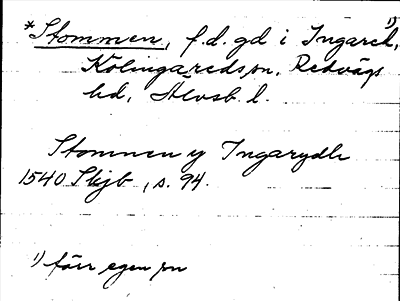 *Stommen, f.d. gd i Ingared, 1)
Kölingaredssn, Redvägs
hd, Älvsb. l.
Stommen y Ingarydh
1540 Skjb, s. 94.
1) förr egen sn